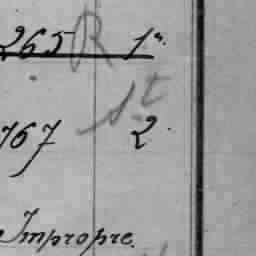 265 R 1ª.
St
767 2.
Impropre.